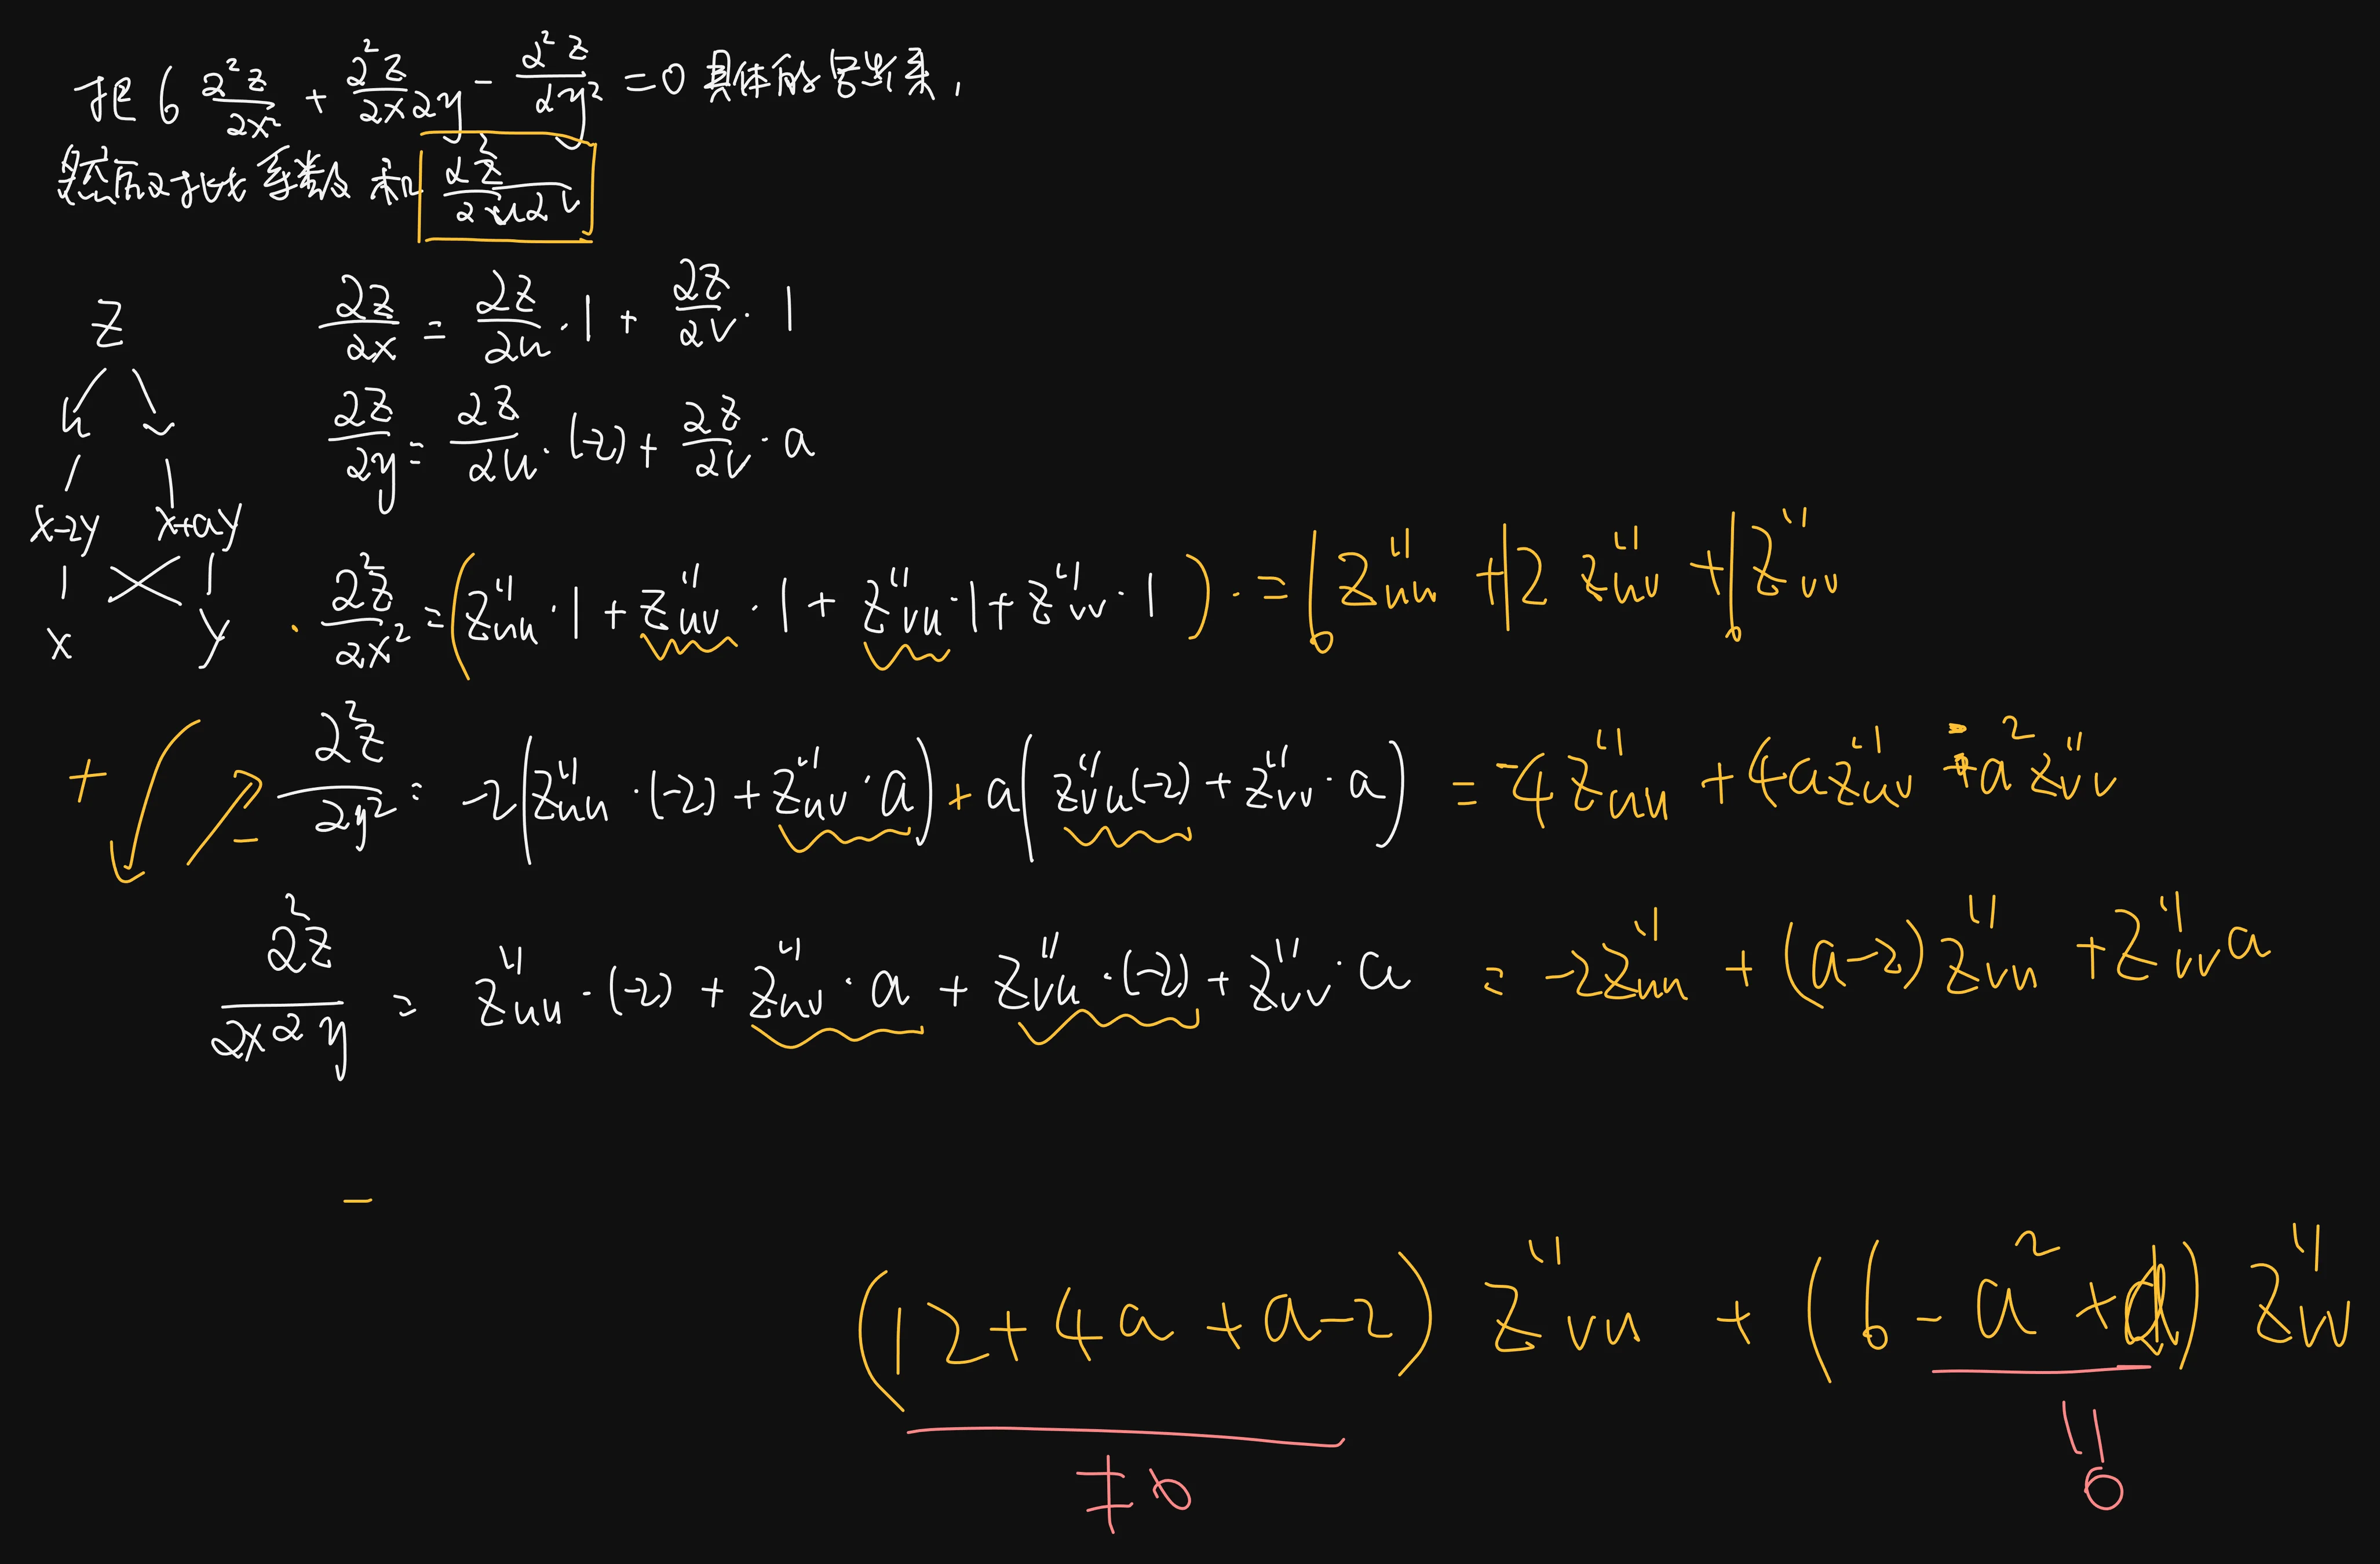 把 6 ∂²z/∂x² + ∂²z/∂x∂y - ∂²z/∂y² = 0 具体的写出来,
然后对比系数 和 ∂²z/∂u∂v
z
u v
x-2y x+ay
x y
∂z/∂x = ∂z/∂u · 1 + ∂z/∂v · 1
∂z/∂y = ∂z/∂u · (-2) + ∂z/∂v · a
· ∂²z/∂x² = (z''uu · 1 + z''uv · 1 + z''vu · 1 + z''vv · 1) · = 6 z''uu + 12 z''uv + 6 z''vv
+ - ∂²z/∂y² = -2(z''uu · (-2) + z''uv · a) + a(z''vu (-2) + z''vv · a) = -4 z''uu + 4a z''uv - a² z''vv
∂²z/∂x∂y = z''uu · (-2) + z''uv · a + z''vu · (-2) + z''vv · a = -2z''uu + (a-2) z''vu + z''vv a
-
(12 + 4a + a - 2) z''vu + (6 - a² + a) z''vv
≠ 0 = 0